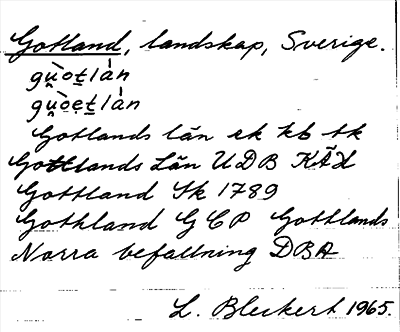 Gotland, landskap, Sverige.
gu̯òt̲làn
gu̯òe̤t̲làn
Gotlands län ek kb tk
Gottlands Län UDB KÄH
Gottland Sk 1789
Gothland GCP Gottlands
Norra befallning DBA
L. Bleckert 1965.